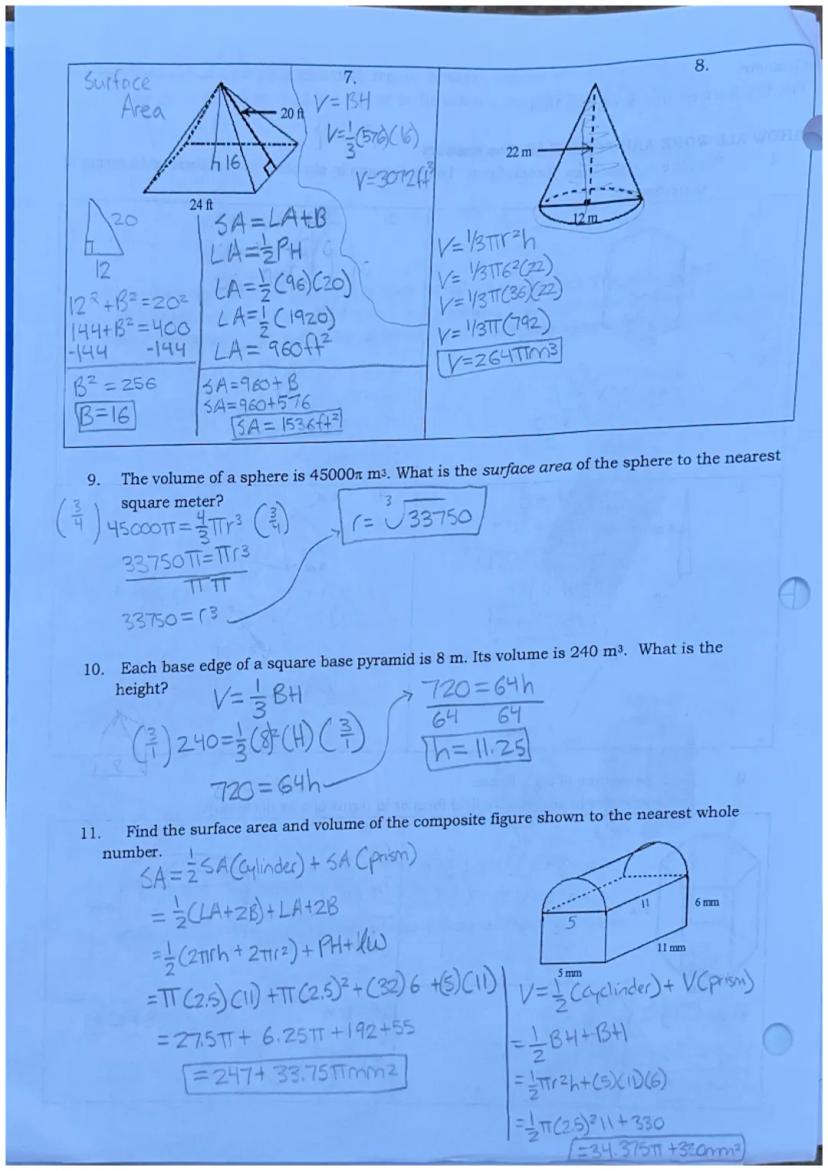 7.
Surface
Area
20 ft
h 16
24 ft
V = BH
V=1/3(576)(16)
V=3072ft³
20
12
12²+B²=20²
144+B²=400
-144 -144
B² = 256
B=16
SA=LA+B
LA=1/2PH
LA=1/2(96)(20)
LA=1/2(1920)
LA= 960ft²
SA=960+B
SA=960+576
SA= 1536ft²
8.
22 m
12 m
V=1/3πr²h
V= 1/3π6²(22)
V=1/3π(36)(22)
V= 1/3π(792)
V=264πm³
9. The volume of a sphere is 45000π m³. What is the surface area of the sphere to the nearest
square meter?
(3/4) 45000π=4/3πr³ (3/4)
33750π=πr³
π π
33750=r³
r= ³√33750
10. Each base edge of a square base pyramid is 8 m. Its volume is 240 m³. What is the
height?
V=1/3BH
(3/1) 240=1/3(8)²(H) (3/1)
720=64h
720=64h
64 64
h=11.25
11. Find the surface area and volume of the composite figure shown to the nearest whole
number.
SA=1/2SA(cylinder)+SA(prism)
=1/2(LA+2B)+LA+2B
=1/2(2πrh+2πr²)+PH+lw
=π(2.5)(11)+π(2.5)²+(32)6+(5)(11)
=27.5π+ 6.25π+192+55
=247+ 33.75πmm2
5
11
6 mm
11 mm
5 mm
V=1/2(cyclinder)+V(prism)
=1/2BH+BH
=1/2πr²h+(5)(11)(6)
=1/2π(2.5)²11+330
=34.375π+330mm³